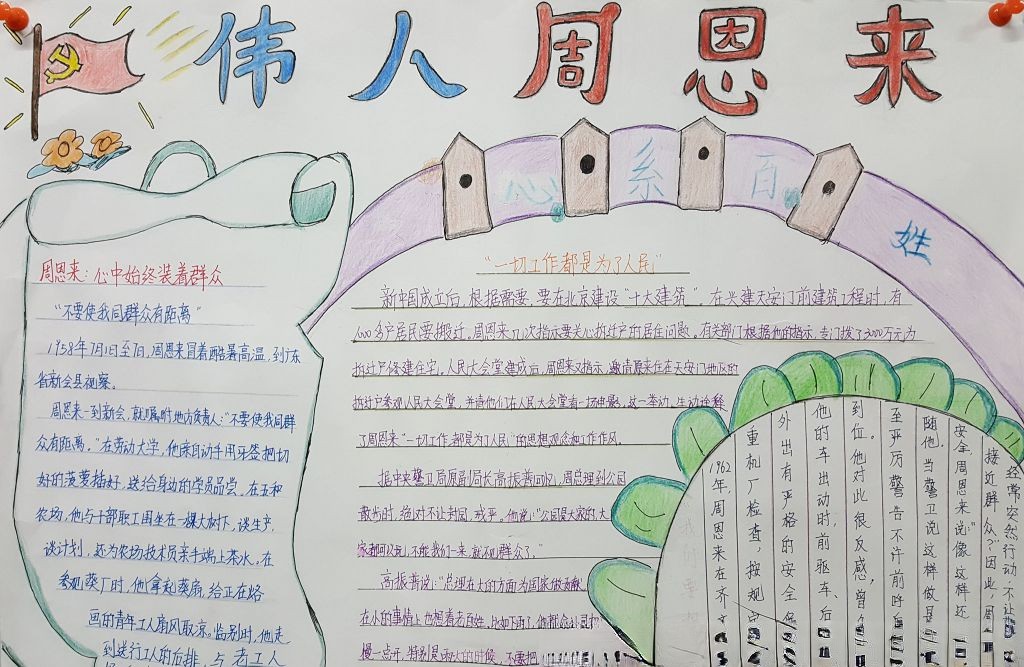 伟人周恩来
心系百姓
周恩来：心中始终装着群众
“不要使我同群众有距离”
1958年7月1日至7日，周恩来冒着酷暑高温，到广东
省新会县视察。
周恩来一到新会，就嘱咐地方负责人：“不要使我同群
众有距离。”在劳动大学，他亲自动手用牙签把切
好的菠萝插好，送给身边的学员品尝。在五和
农场，他与干部职工围坐在一棵大树下，谈生产，
谈计划，还为农场技术员亲手端上茶水。在
参观葵厂时，他拿起葵扇，给正在烙
画的青年工人扇风取凉。临别时，他走
到送行工人的后排，与老工人
“一切工作都是为了人民”
新中国成立后，根据需要，要在北京建设“十大建筑”。在兴建天安门前建筑工程时，有
600多户居民要搬迁。周恩来几次指示要关心拆迁户的居住问题。有关部门根据他的指示，专门拨了3000万元为
拆迁户修建住宅。人民大会堂建成后，周恩来又指示，邀请原来住在天安门地区的
拆迁户参观人民大会堂，并请他们在人民大会堂看一场电影，这一举动，生动诠释
了周恩来“一切工作都是为了人民”的思想观念和工作作风。
据中央警卫局原副局长高振普回忆，周总理到公园
散步时，绝对不让封园，戒严。他说：“公园是大家的，大
家都可以玩，不能我们一来，就不见群众了。”
高振普说：“总理在大的方面为国家做贡献，
在小的事情上也想着老百姓，比如下雨了，
慢一点开，特别是
1962年，周恩来在齐
重机厂检查，按规定
外出有严格的安全保
他的车出动时，前驱车、后
到位。他对此很反感，曾
至严厉警告不许前呼后
随他。当警卫说这样做是
安全，周恩来说：“像这样还
接近群众？因此，周
经常突然行动，不让